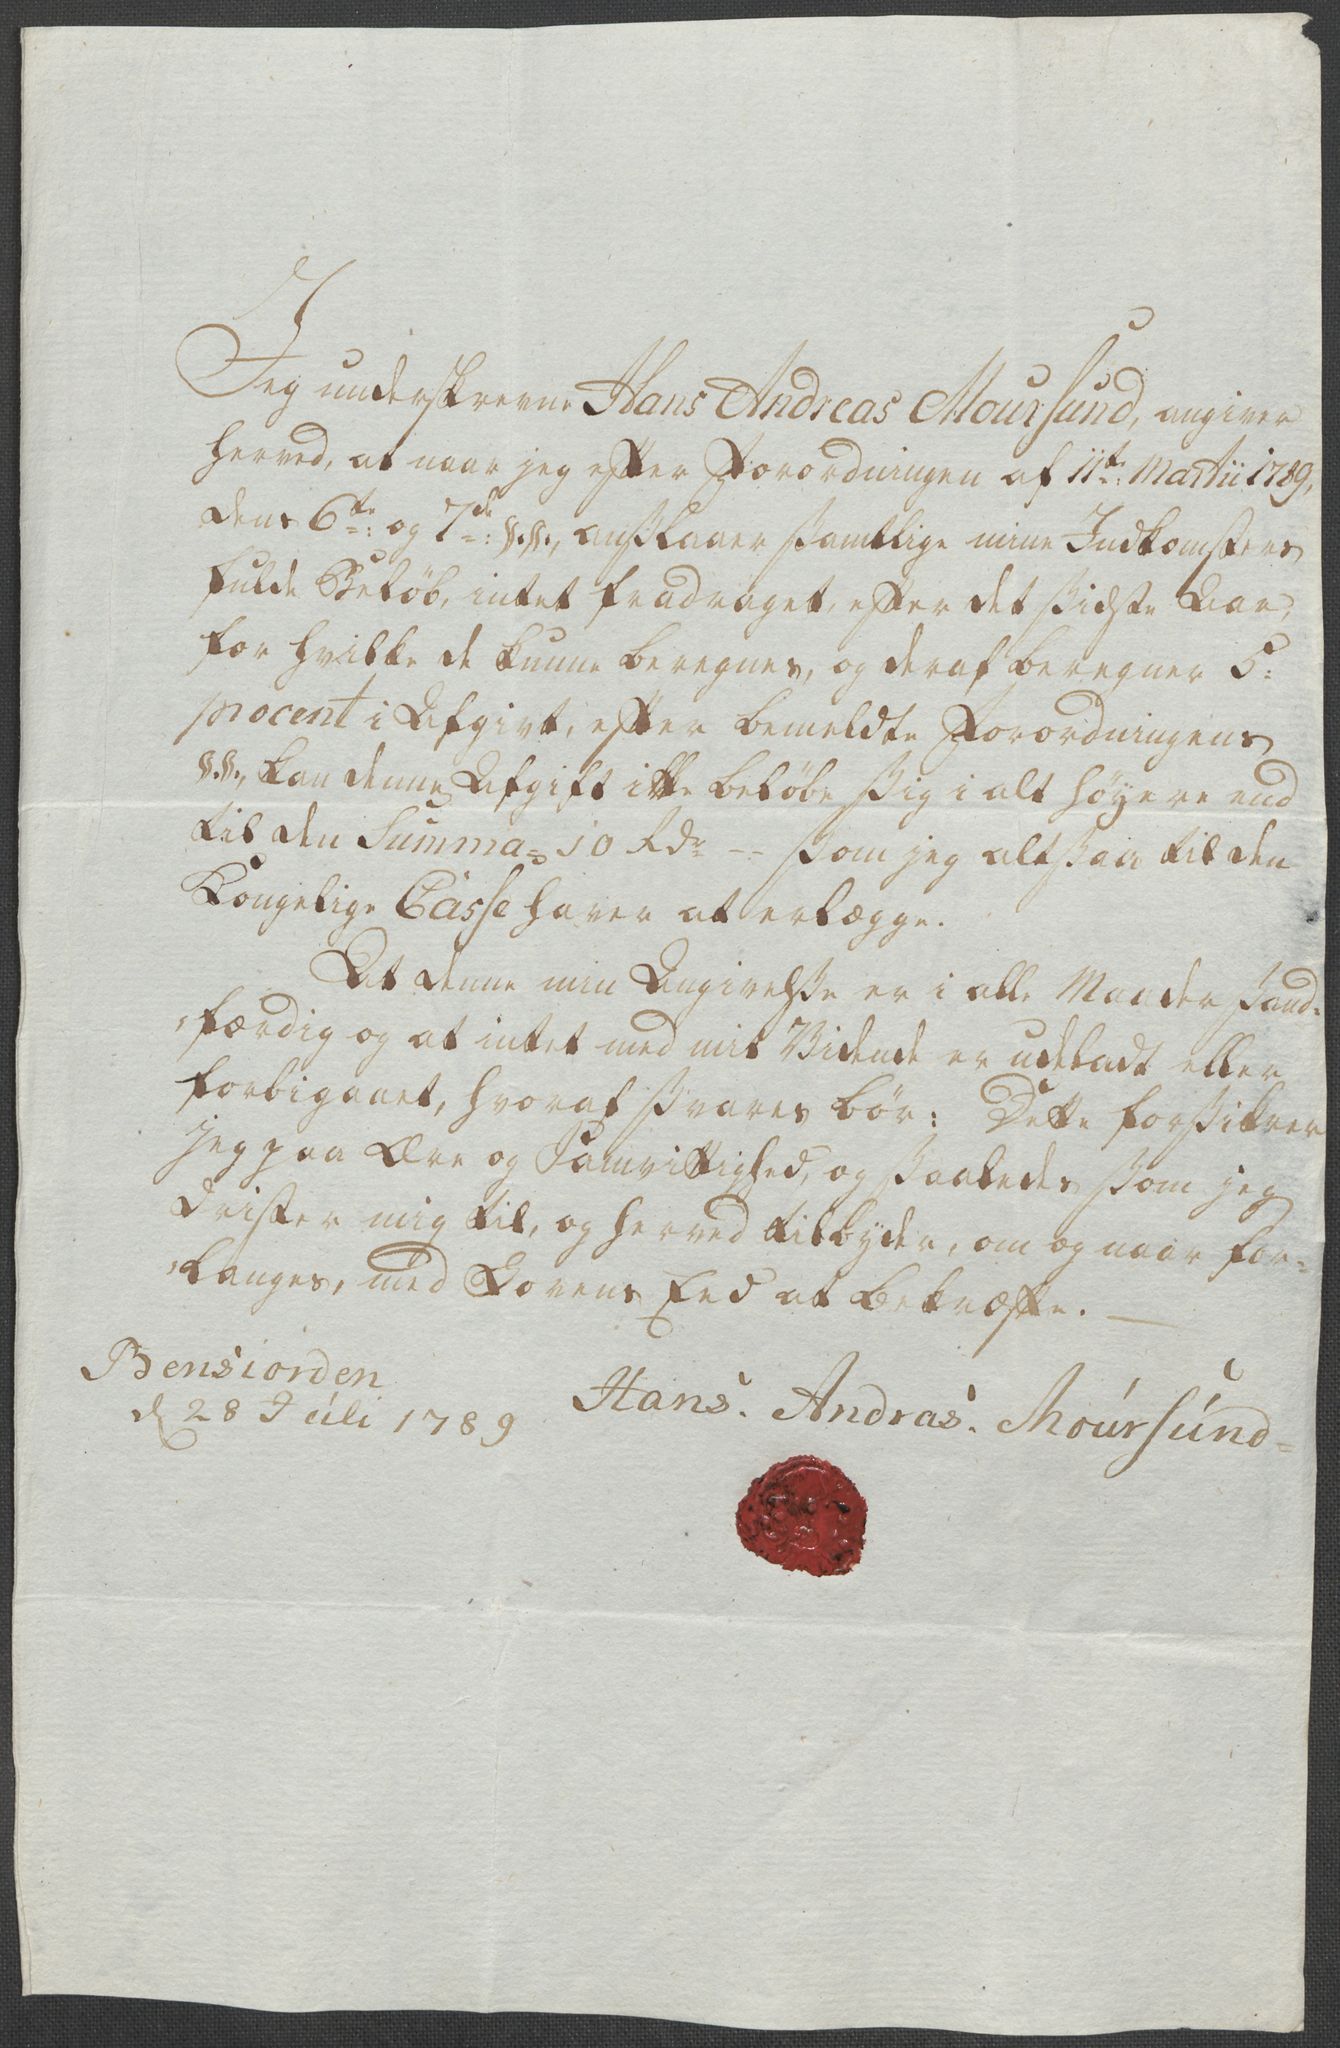 Jeg underskrevne Hans Andreas Moursund, angiver
herved, at naar jeg efter Forordningen af 11te Martii 1789,
dens 6te: og 7de: §.§., anslaaer samtlige mine Indkomsters
fulde Beløb, intet fradraget, efter det sidste Aar,
for hvilke de kunne beregnes, og deraf beregner 5:
procent i Afgivt, efter bemeldte Forordningens
§.§., kan denne Afgift ikke beløbe sig i alt høyere end
til den Summa = 10 Rdr -- som jeg altsaa til den
Kongelige Casse haver at erlægge.
At denne min Angivelse er i alle Maader sand-
færdig og at intet med mit Vidende er udeladt eller
forbigaaet, hvoraf svares bør: Dette forsikrer
jeg paa Ære og Samvittighed, og saaledes som jeg
drister mig til, og herved tilbyder, om og naar for-
langes, med Lovens Eed at bekræfte. —
Bensiorden
d 28 Juli 1789
Hans. Andras. Moursund=